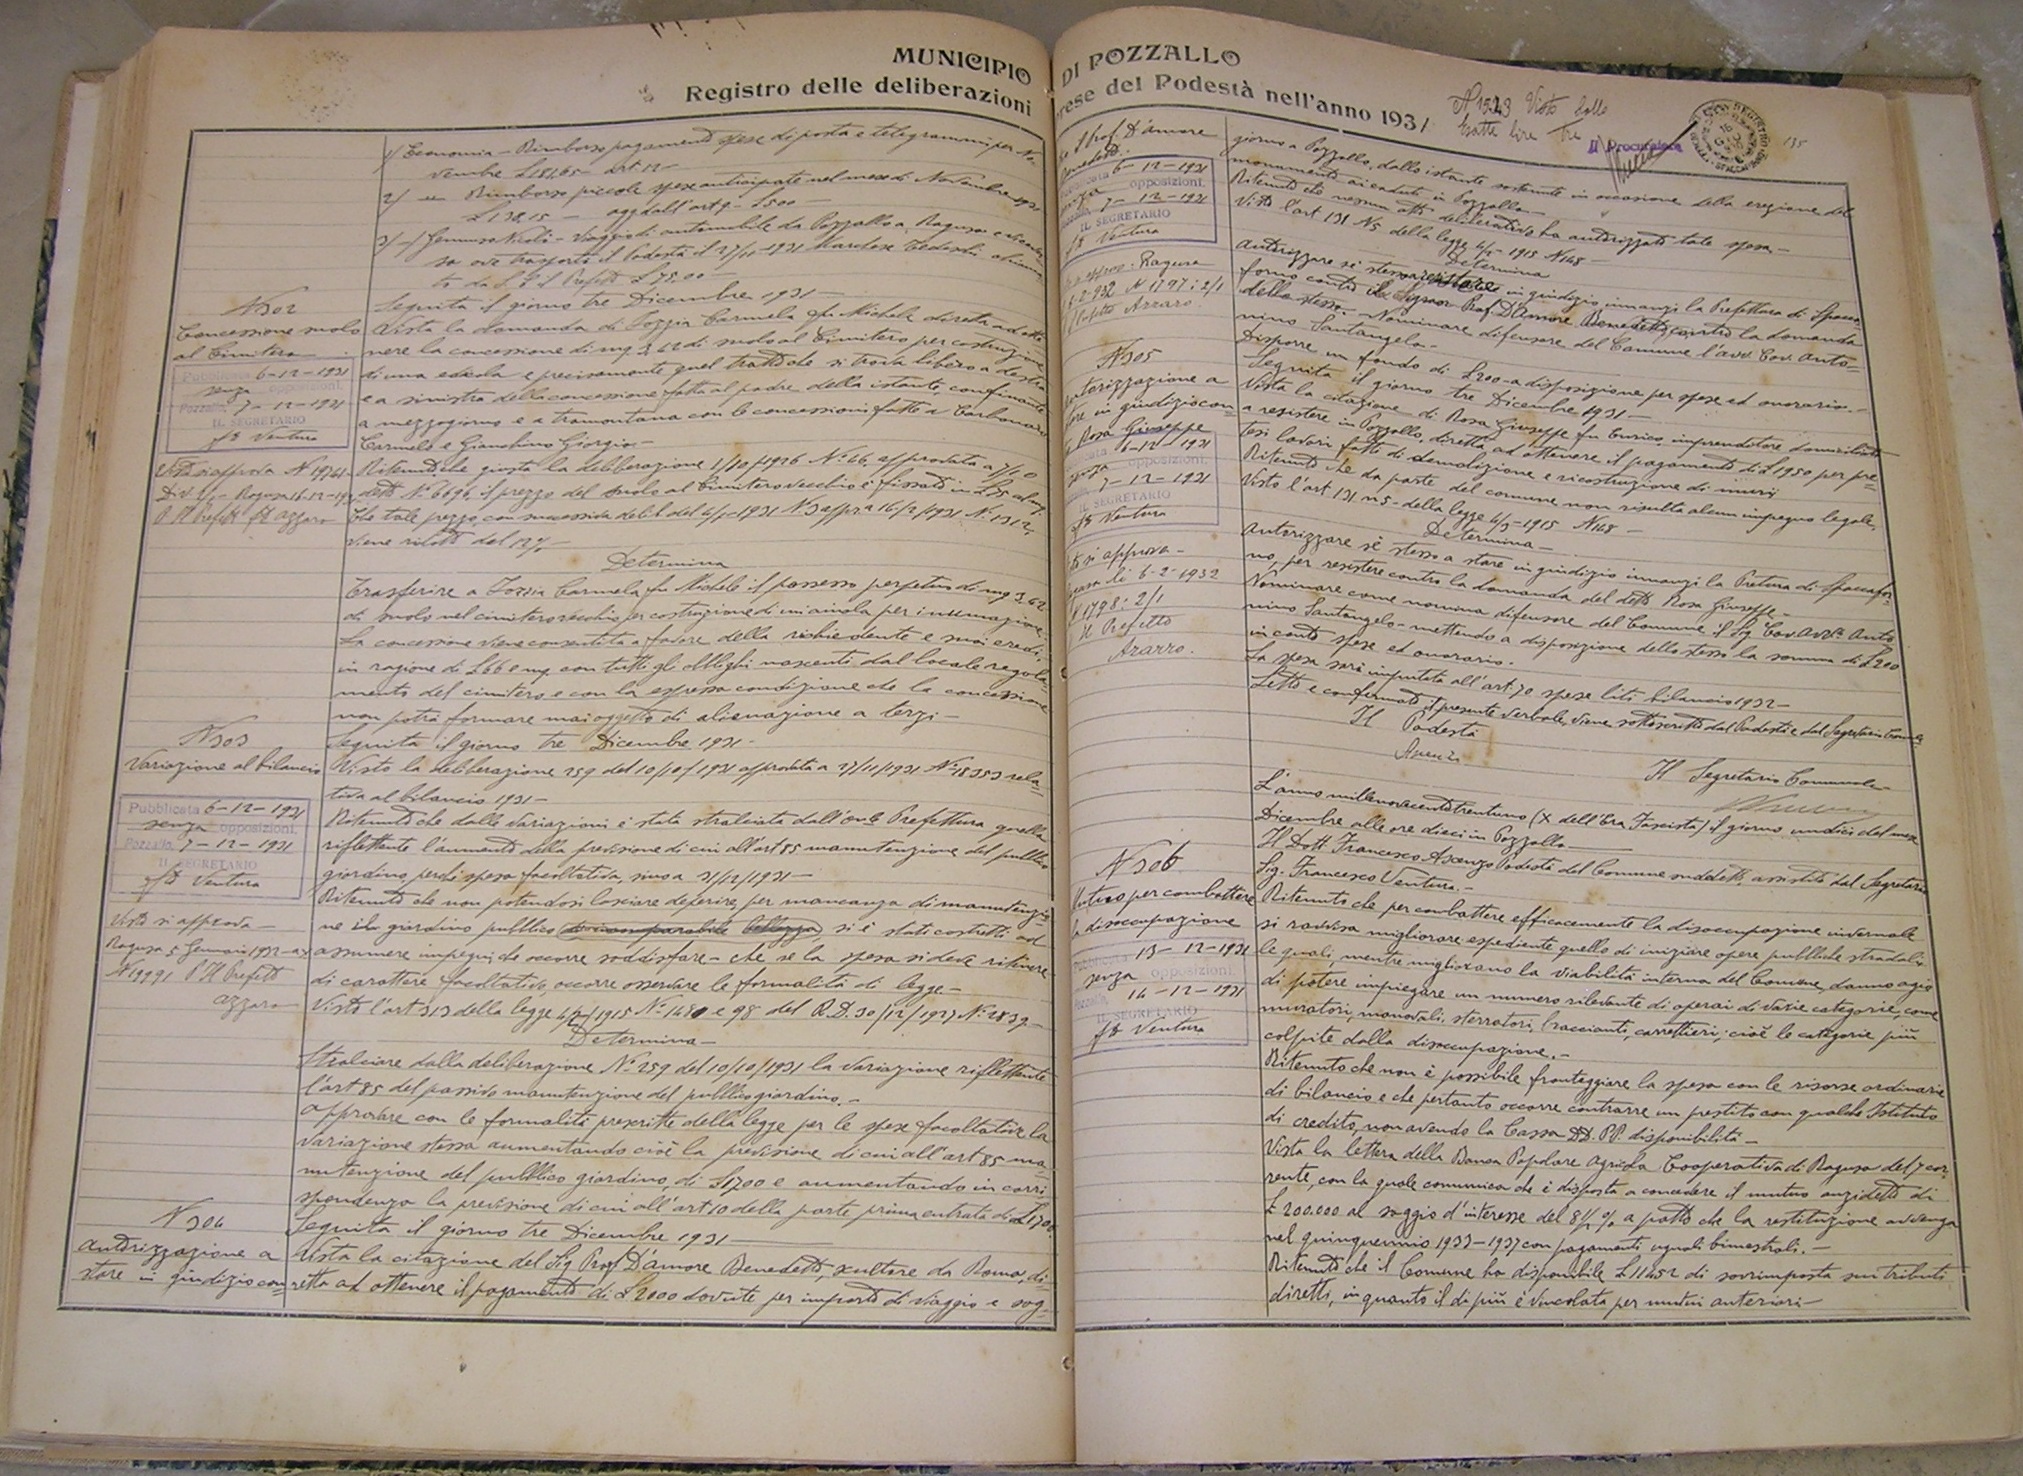 MUNICIPIO DI POZZALLO
Registro delle deliberazioni prese del Podestà nell'anno 1931
1/ Economia - Rimborso pagamento spese di posta e telegrammi per No-
vembre £181,65 - art. 12 -
2/ Rimborso piccole spese anticipate nel mese di Novembre 1931
£138,15 - agg. dall'art. 9 - £500 -
3/ Gennuso Nicolò - Viaggio di automobile da Pozzallo a Ragusa e
so ove trasportò il Podestà il 27/11-1931
to da S. E. il Prefetto £75,00 -
N 302
Concessione suolo
al Cimitero
Pubblicata 6-12-1931
senza opposizioni.
Pozzallo, 7-12-1931
IL SEGRETARIO
fto Ventura
Visto si approva N 19741
Div. 2/1 - Ragusa 16-12-1931
P. Il Prefetto fto Azzaro
Seguita il giorno tre Dicembre 1931 -
Vista la domanda di Carmela fu Michele diretta ad otte-
nere la concessione di mq 3,62 di suolo al Cimitero per costruzione
di una edicola e precisamente quel tratto che si trova libero a destra
e a sinistra della concessione fatta al padre della istante, confinante
a mezzogiorno e a tramontana con le concessioni fatte a Carbonaro
Carmelo e Giorgio. -
Ritenuto che giusta la deliberazione 1/10/1926 N° 46, approvata a
detto N° 6696, il prezzo del suolo al Cimitero vecchio è fissato in £75 al mq.
Che tale prezzo, con successiva delib. del 1931 N 3 appr. a 16/2/1931 N° 1312,
viene ridotto del 12% -
Determina
Trasferire a Carmela fu Michele il possesso perpetuo di mq 3,62
di suolo nel cimitero vecchio per costruzione di un'aiuola per inumazione.
La concessione viene consentita a favore della richiedente e suoi eredi,
in ragione di £66 a mq con tutti gli obblighi nascenti dal locale regola-
mento del cimitero e con la espressa condizione che la concessione
non potrà formare mai oggetto di alienazione a terzi -
N 303
Variazione al bilancio
Pubblicata 6-12-1931
senza opposizioni.
Pozzallo, 7-12-1931
IL SEGRETARIO
fto Ventura
Visto si approva -
Ragusa 5 Gennaio 1932 - a X
N 19991 P. Il Prefetto
Azzaro
Seguita il giorno tre Dicembre 1931 -
Vista la deliberazione 259 del 10/10/1931 approvata a 27/11/1931 N° 18353 rela-
tiva al bilancio 1931 -
Ritenuto che dalle variazioni è stata stralciata dall'On.le Prefettura quella
riflettente l'aumento della previsione di cui all'art 85 manutenzione del pubblico
giardino, perché spesa facoltativa, sino a 31/12/1931 -
Ritenuto che non potendosi lasciare deperire, per mancanza di manutenzio-
ne il giardino pubblico di incomparabile bellezza si è stati costretti ad
assumere impegni, che occorre soddisfare - che se la spesa si deve ritenere
di carattere facoltativo, occorre osservare le formalità di legge. -
Visto l'art 313 della legge 4/2/1915 N° 148 e 98 del R.D. 30/12/1923 N° 2839 -
Determina -
Stralciare dalla deliberazione N° 259 del 10/10/1931 la variazione riflettente
l'art 85 del passivo manutenzione del pubblico giardino. -
Approvare con le formalità prescritte della legge per le spese facoltative la
variazione stessa aumentando cioè la previsione di cui all'art 85 ma-
nutenzione del pubblico giardino, di £1700 e aumentando in corri-
spondenza la previsione di cui all'art 10 della parte prima entrata di £1700.
N 304
Autorizzazione a
stare in giudizio con-
Seguita il giorno tre Dicembre 1931 -
Vista la citazione del Sig Prof D'Amore Benedetto, scultore da Roma, di-
retta ad ottenere il pagamento di £2000 dovute per importo di viaggio e sog-
N 1523 Visto Bollo
Esatte lire tre
Il Procuratore
135
tro il Prof. D'Amore
Benedetto.
Pubblicata 6-12-1931
senza opposizioni.
Pozzallo, 7-12-1931
IL SEGRETARIO
fto Ventura
Ragusa
6-2-932 N 1797: 2/1
Il Prefetto Azzaro.
giorno a Pozzallo, dallo istante sostenute in occasione della erezione del
monumento ai caduti in Pozzallo -
Ritenuto che nessun atto deliberativo ha autorizzato tale spesa -
Visto l'art 131 N 5 della legge 4/2-1915 N 148 -
Determina
Autorizzare sè stesso a resistere in giudizio innanzi la Prefettura di Spacca-
forno contro il Signor Prof. D'Amore Benedetto, contro la domanda
dello stesso. Nominare difensore del Comune l'avv. Cav. Anto-
nino Santangelo. -
Disporre un fondo di £200 - a disposizione per spese ed onorario. -
N 305
Autorizzazione a
stare in giudizio con-
tro Rosa Giuseppe
Pubblicata 6-12-1931
senza opposizioni.
Pozzallo, 7-12-1931
IL SEGRETARIO
fto Ventura
Visto si approva -
Ragusa lì 6-2-1932
N 1798: 2/1
Il Prefetto
Azzarro.
Seguita il giorno tre Dicembre 1931 -
Vista la citazione di Rosa Giuseppe fu Enrico, imprenditore domiciliato
a resistere in Pozzallo, diretta ad ottenere il pagamento di £1950 per pre-
tesi lavori fatti di demolizione e ricostruzione di muri
Ritenuto che da parte del comune non risulta alcun impegno legale.
Visto l'art 131 n 5 - della legge 4/2-1915 N 148 -
Determina -
Autorizzare sè stesso a stare in giudizio innanzi la Pretura di Spaccafor-
no, per resistere contro la domanda del detto Rosa Giuseppe -
Nominare come nomina difensore del Comune il Sig Cav. Avv. Anto-
nino Santangelo - mettendo a disposizione dello stesso la somma di £200
in conto spese ed onorario.
La spesa sarà imputata all'art. 70 spese liti bilancio 1932 -
Letto e confermato il presente Verbale, viene sottoscritto dal Podestà e dal Segretario Comunale
Il Podestà
Il Segretario Comunale
L'anno millenovecentotrentuno (X dell'Era Fascista) il giorno undici del mese
Dicembre alle ore dieci in Pozzallo
Il Dott Francesco Ascenzo Podestà del Comune suddetto, assistito dal Segretario
Sig. Francesco Ventura. -
N 306
Mutuo per combattere
la disoccupazione
Pubblicata 13-12-1931
senza opposizioni.
Pozzallo, 14-12-1931
IL SEGRETARIO
fto Ventura
Ritenuto che per combattere efficacemente la disoccupazione invernale
si ravvisa migliore espediente quello di iniziare opere pubbliche stradali,
le quali, mentre migliorano la viabilità interna del Comune, danno agio
di potere impiegare un numero rilevante di operai di varie categorie, come
muratori, manovali, sterratori, braccianti, carrettieri, cioè le categorie più
colpite dalla disoccupazione. -
Ritenuto che non è possibile fronteggiare la spesa con le risorse ordinarie
di bilancio e che pertanto occorre contrarre un prestito con qualche Istituto
di credito, non avendo la Cassa DD. PP. disponibilità -
Vista la lettera della Banca Popolare Agricola Cooperativa di Ragusa del 7 cor-
rente, con la quale comunica che è disposta a concedere il mutuo anzidetto di
£ 200.000 al saggio d'interesse del 8½% a patto che la restituzione avvenga
nel quinquennio 1933-1937 con pagamenti uguali bimestrali. -
Ritenuto che il Comune ha disponibile £11452 di sovrimposta sui tributi
diretti, in quanto il di più è vincolata per mutui anteriori -